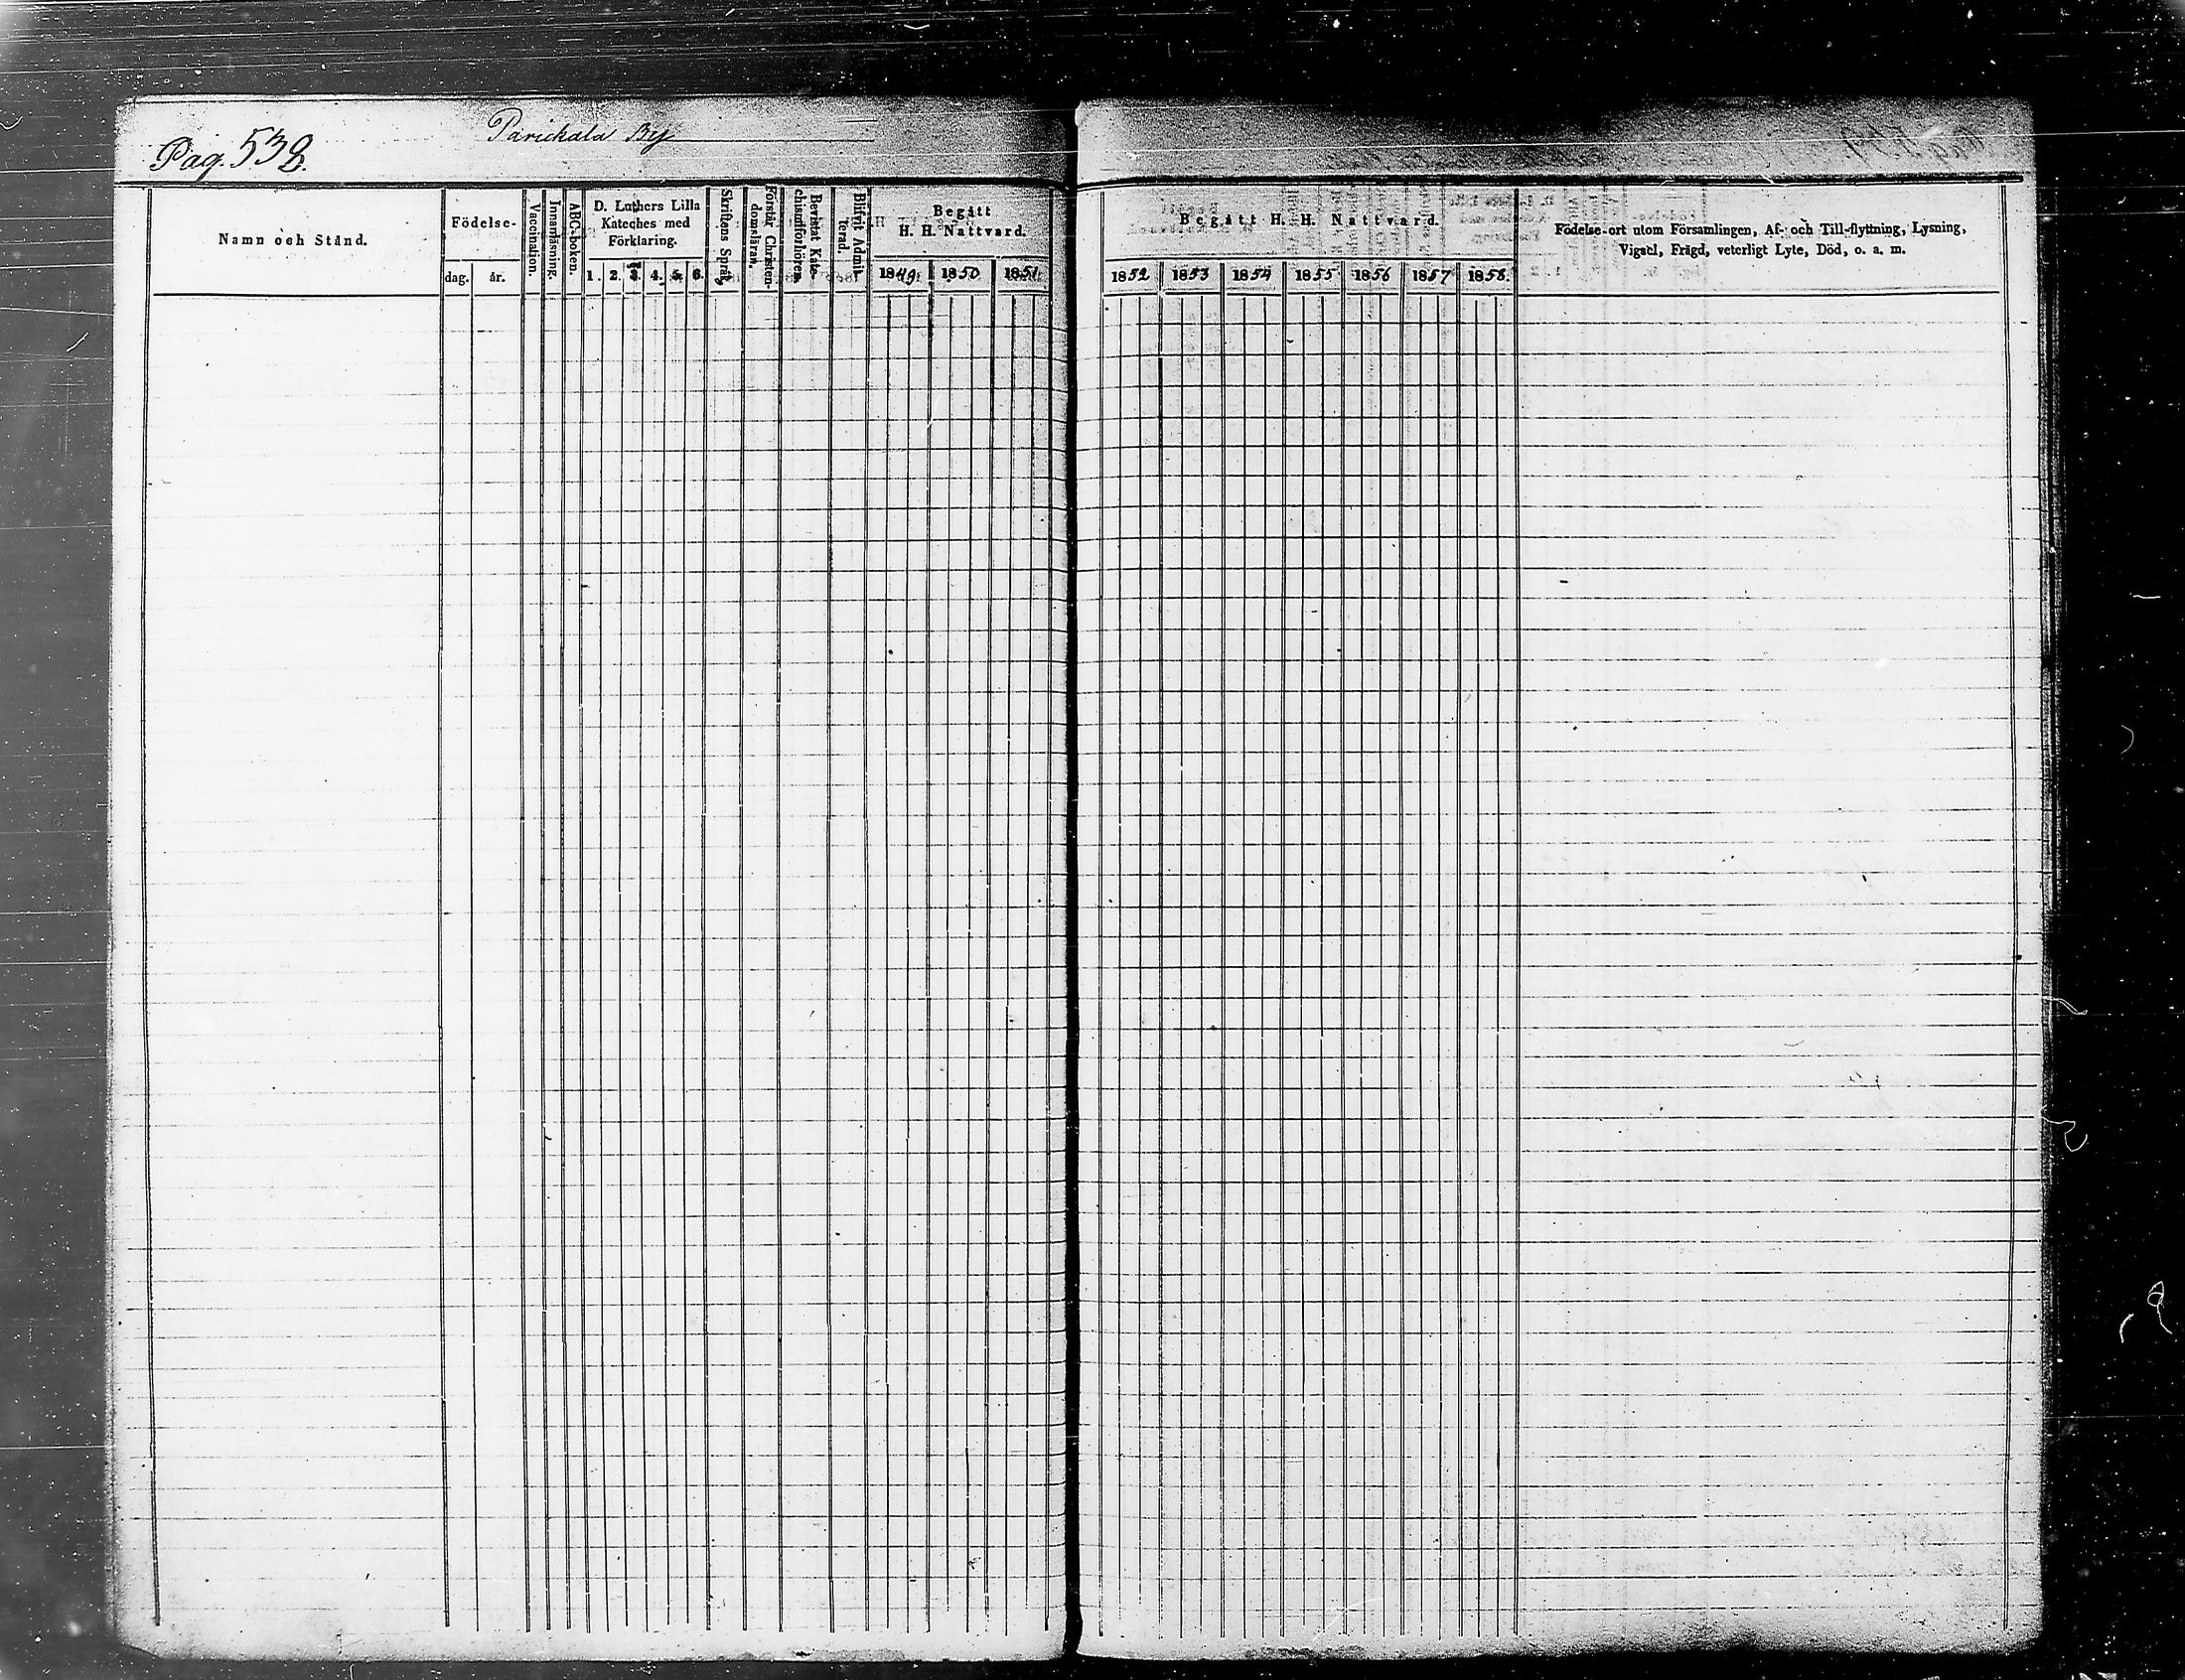 Pag. 532.
Parickala By
Namn och Stånd.
Födelse-
dag.
år.
Vaccination.
Innanläsning.
ABC-boken.
D. Luthers Lilla
Kateches med
Förklaring.
1. 2. 3. 4. 5. 6.
Skriftens Språk.
Förstår Christen-
domsläran.
Bevistat Kate-
chismiförhören.
Blifvit Admit-
terad.
Begått
H. H. Nattvard.
1849. 1850 1851
Begått H. H. Nattvard.
1852 1853 1854 1855 1856 1857 1858.
Födelse-ort utom Församlingen, Af- och Till-flyttning, Lysning,
Vigsel, Frägd, veterligt Lyte, Död, o. a. m.